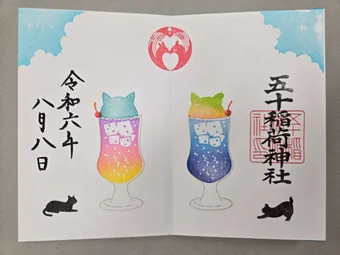 五十稲荷神社
令和六年
八月八日